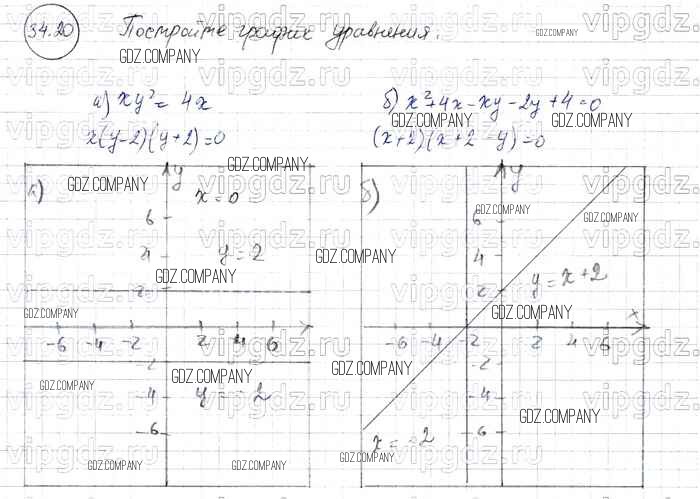 34.20 Постройте график уравнения.
GDZ.COMPANY GDZ.COMPANY
а) xy² = 4x б) x²+4x-xy-2y+4=0
GDZ.COMPANY GDZ.COMPANY
x(y-2)(y+2)=0 (x+2)(x+2-y)=0
GDZ.COMPANY GDZ.COMPANY
а) y б) y
GDZ.COMPANY x=0 GDZ.COMPANY GDZ.COMPANY
6 6
4 y=2 GDZ.COMPANY 4
GDZ.COMPANY y=x+2
2 2
GDZ.COMPANY GDZ.COMPANY x
-6 -4 -2 2 4 6 -6 -4 -2 2 4 6
-2 -2
GDZ.COMPANY GDZ.COMPANY GDZ.COMPANY
-4 y=-2 -4 GDZ.COMPANY
-6 x=-2 -6
GDZ.COMPANY GDZ.COMPANY GDZ.COMPANY GDZ.COMPANY
vipgdz.ru